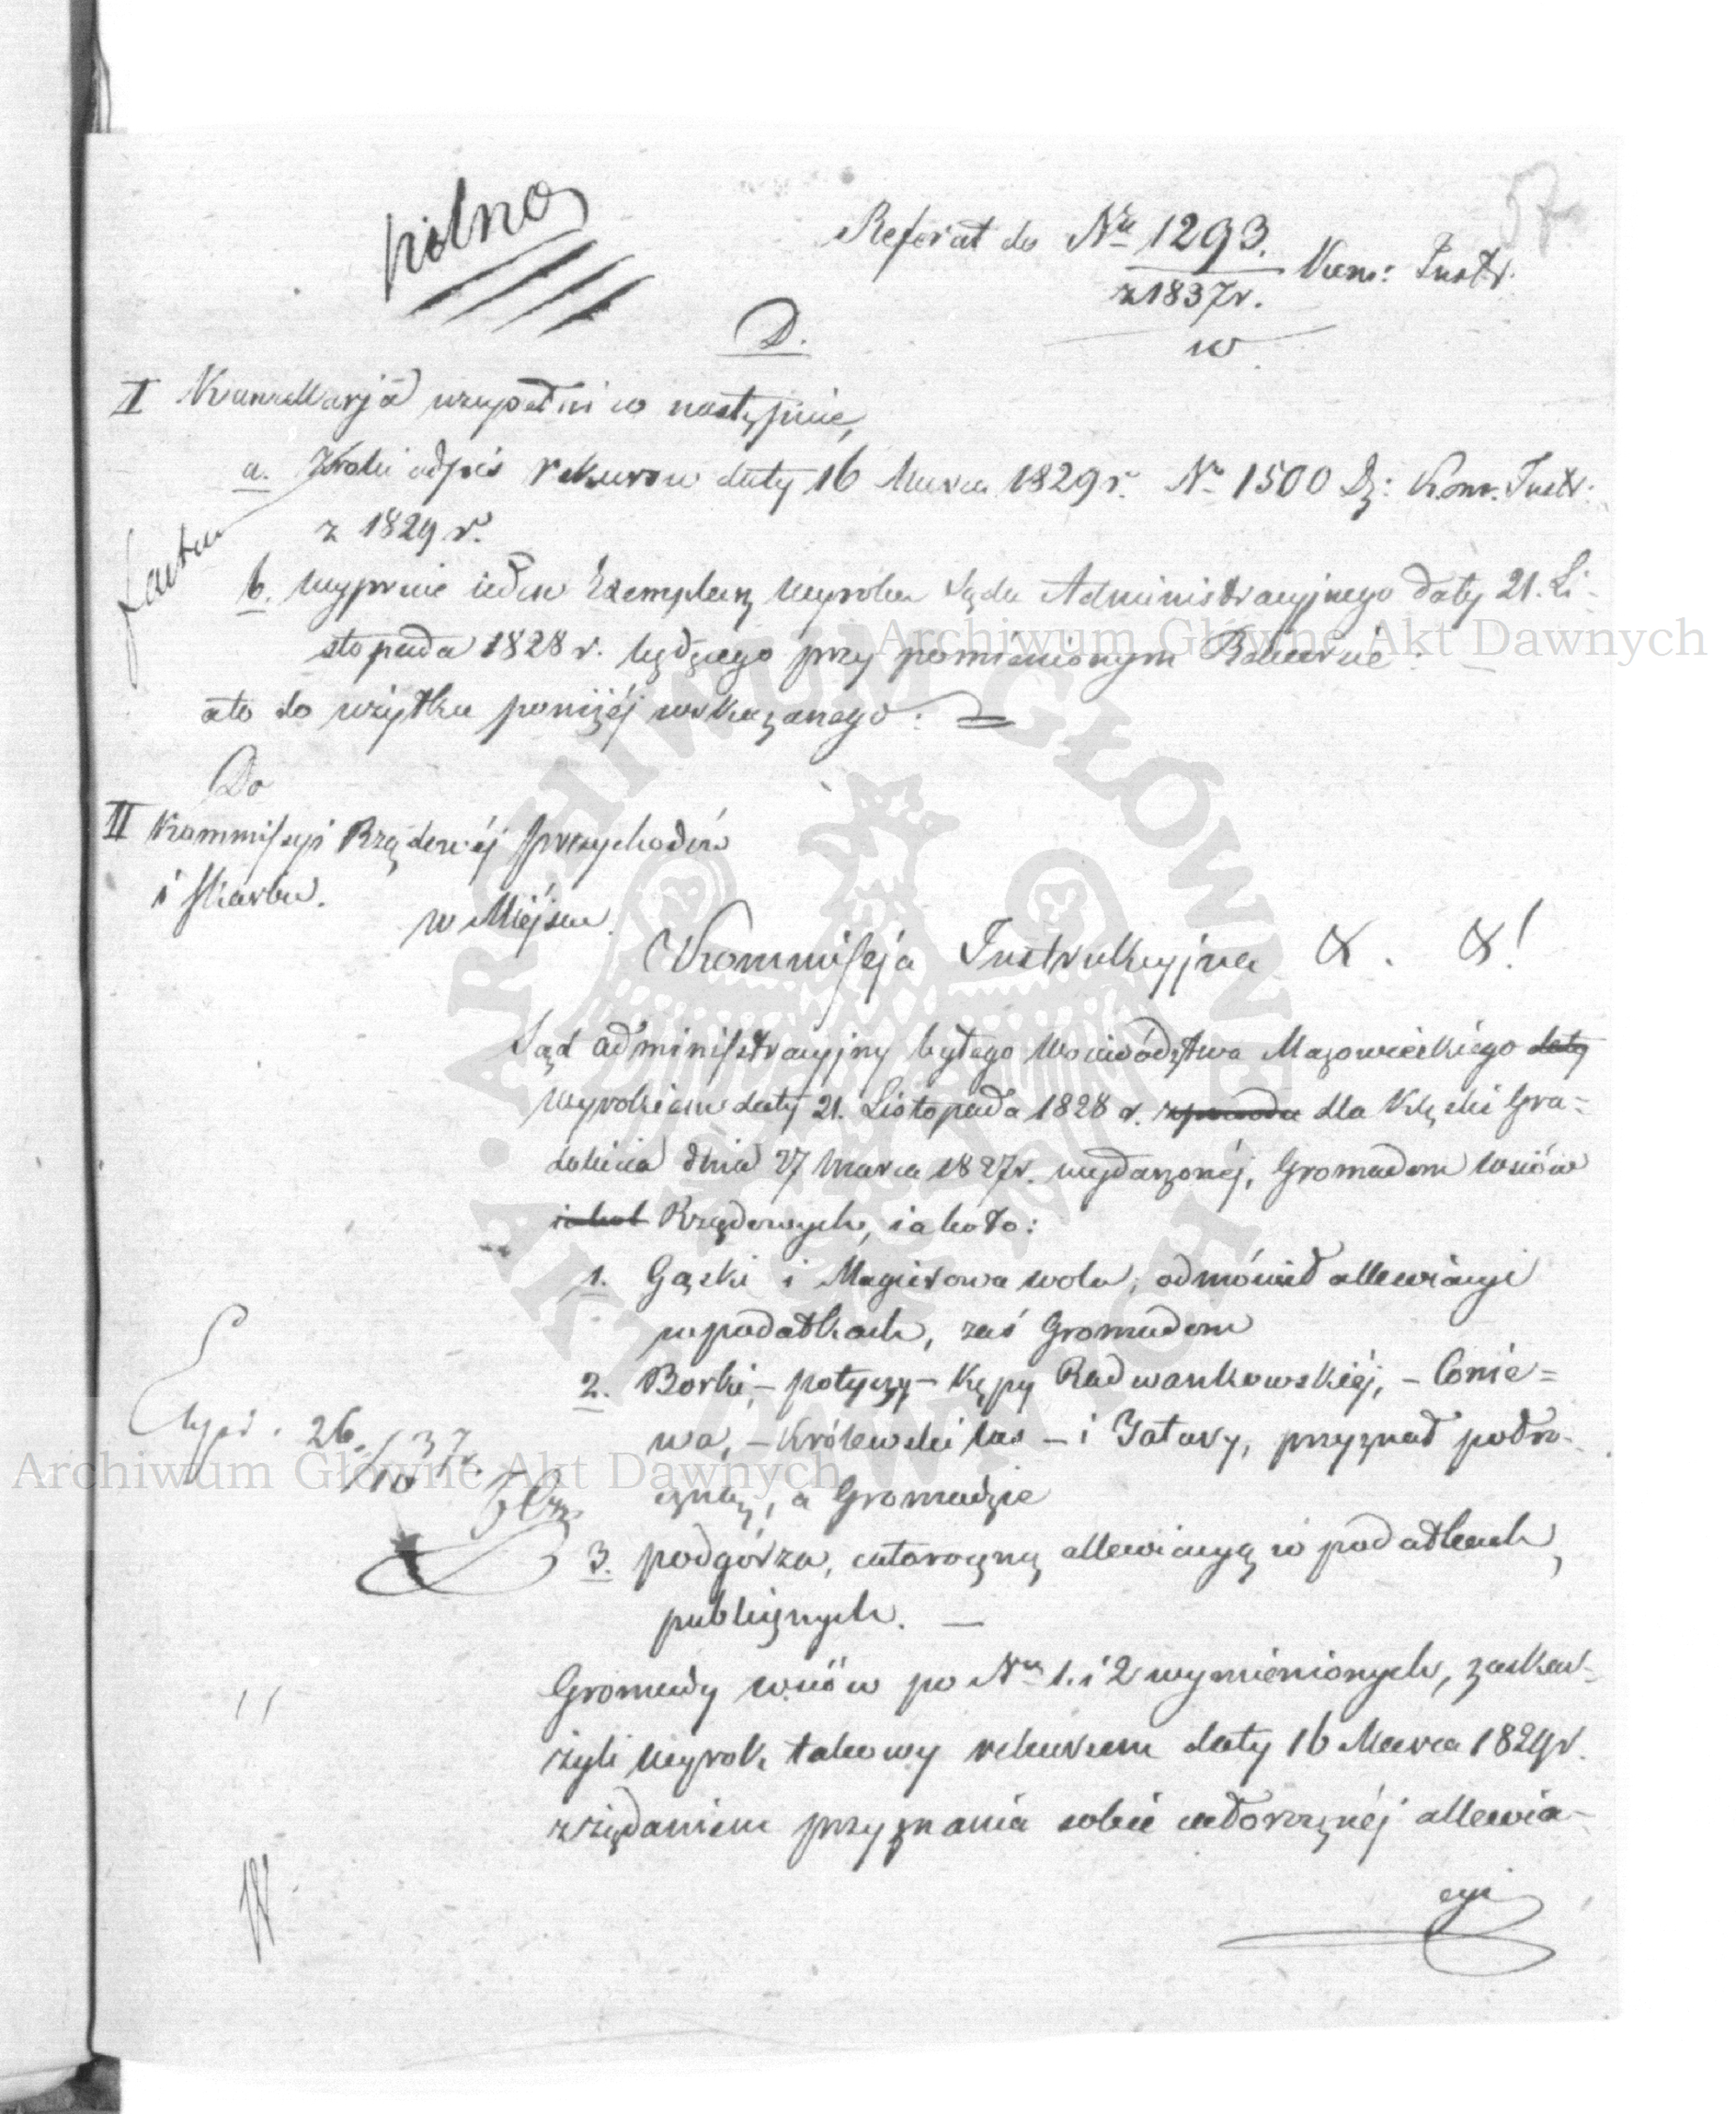 57
pilno
Referat do Nru 1293. Kom: Instr.
z 1837 r.
w
D.
I Kancellarja uzupełni w następnie,
a. Zrobi odpis rekursu daty 16 Marca 1829 r. Nr 1500 Dz: Kom. Instr.
z 1829 r.
b. wypruie ieden Exemplarz wyroku Sądu Administracyjnego daty 21. Li-
stopada 1828 r. będącego przy pomienionym Rekursie:
a to do użytku poniżéj wskazanego:
Do
II Kommissyi Rządowéj przychodów
i skarbu.
w Miéjscu.
Kommissja Instrukcyjna & . &!
Sąd administracyjny byłego Woiewództwa Mazowieckiego daty
wyrokiem daty 21. Listopada 1828 r. z powodu dla klęski Gra-
dobicia dnia 27 marca 1827 r. wydarzonéj, Gromadom wsiów
iakoto Rządowych, iakoto:
1. Gąski i Magierowa wola, odmówił allewiacyi
w podatkach, zaś Gromadom
2. Borki, - potyczy - Kępy Radwankowskiéj, - Conie=
wa, - Królewski las - i Jatary, przyznał podro-
czną, a Gromadzie
3. podgórza, całoroczną allewiacyą w podatkach
publicznych. —
Gromady wsiów po Nrm 1. i 2 wymienionych, zaskar-
żyli wyrok takowy rekursem daty 16 Marca 1829 r.
z żądaniem przyznania sobie całorocznéj allewia-
cyi
Exp. 26/10 37 r.
Archiwum Główne Akt Dawnych
Archiwum Główne Akt Dawnych
ARCHIWUM GŁÓWNE AKT DAWNYCH